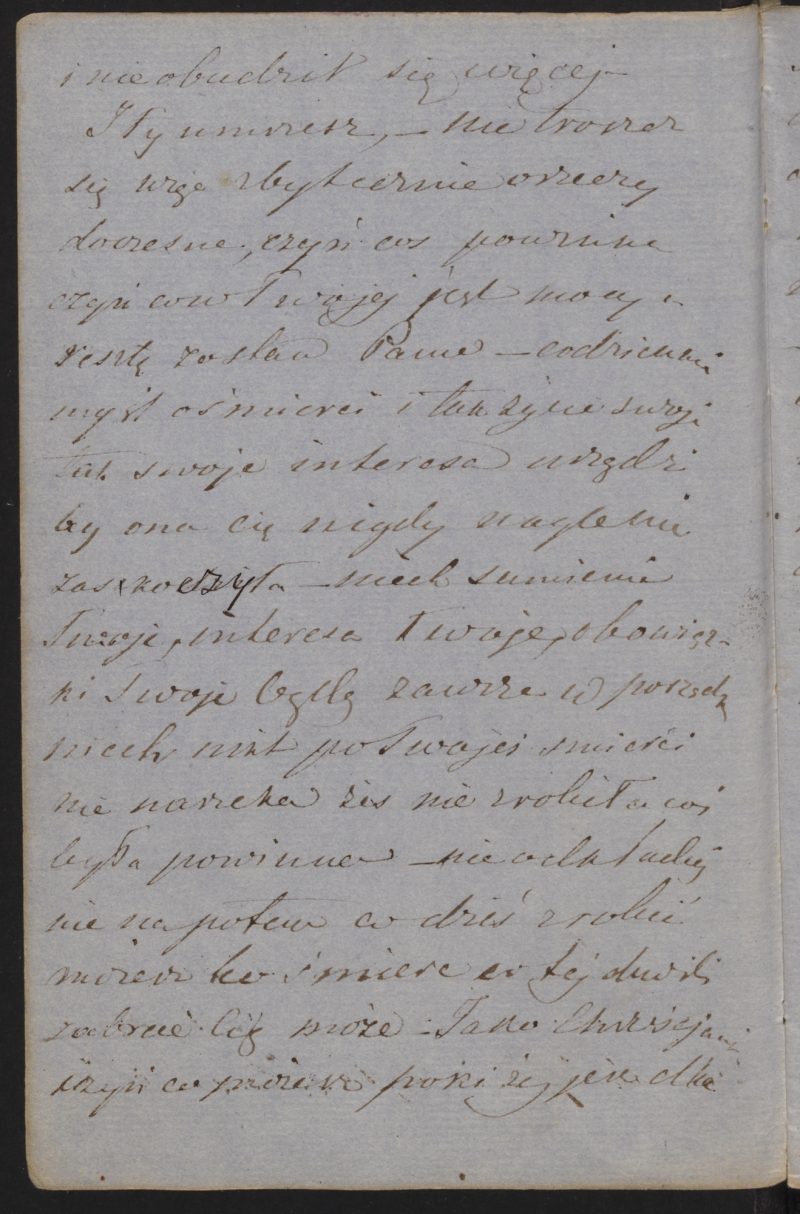 i nie obudził się więcej –
I ty umrzesz, – nie troszcz
się więc zbytecznie o rzeczy
doczesne, czyń coś powinna
czyń co w Twojej jest mocy a
resztę zostaw Panu – codziennie
myśl o śmierci i tak życie swoje
tak swoje interesa urządź
by ona cię nigdy nagle nie
zaskoczyła – niech sumienie
Twoje, interesa Twoje, obowiąz-
ki Twoje będą zawsze w porządku
niech nikt po Twojej śmierci
nie narzeka żeś nie zrobiła coś
była powinna – nie odkładaj
nic na potem co dziś zrobić
możesz bo śmierć w tej chwili
zabrać Cię może – Jako Chrześcjanka
czyń co możesz póki żyjesz dla